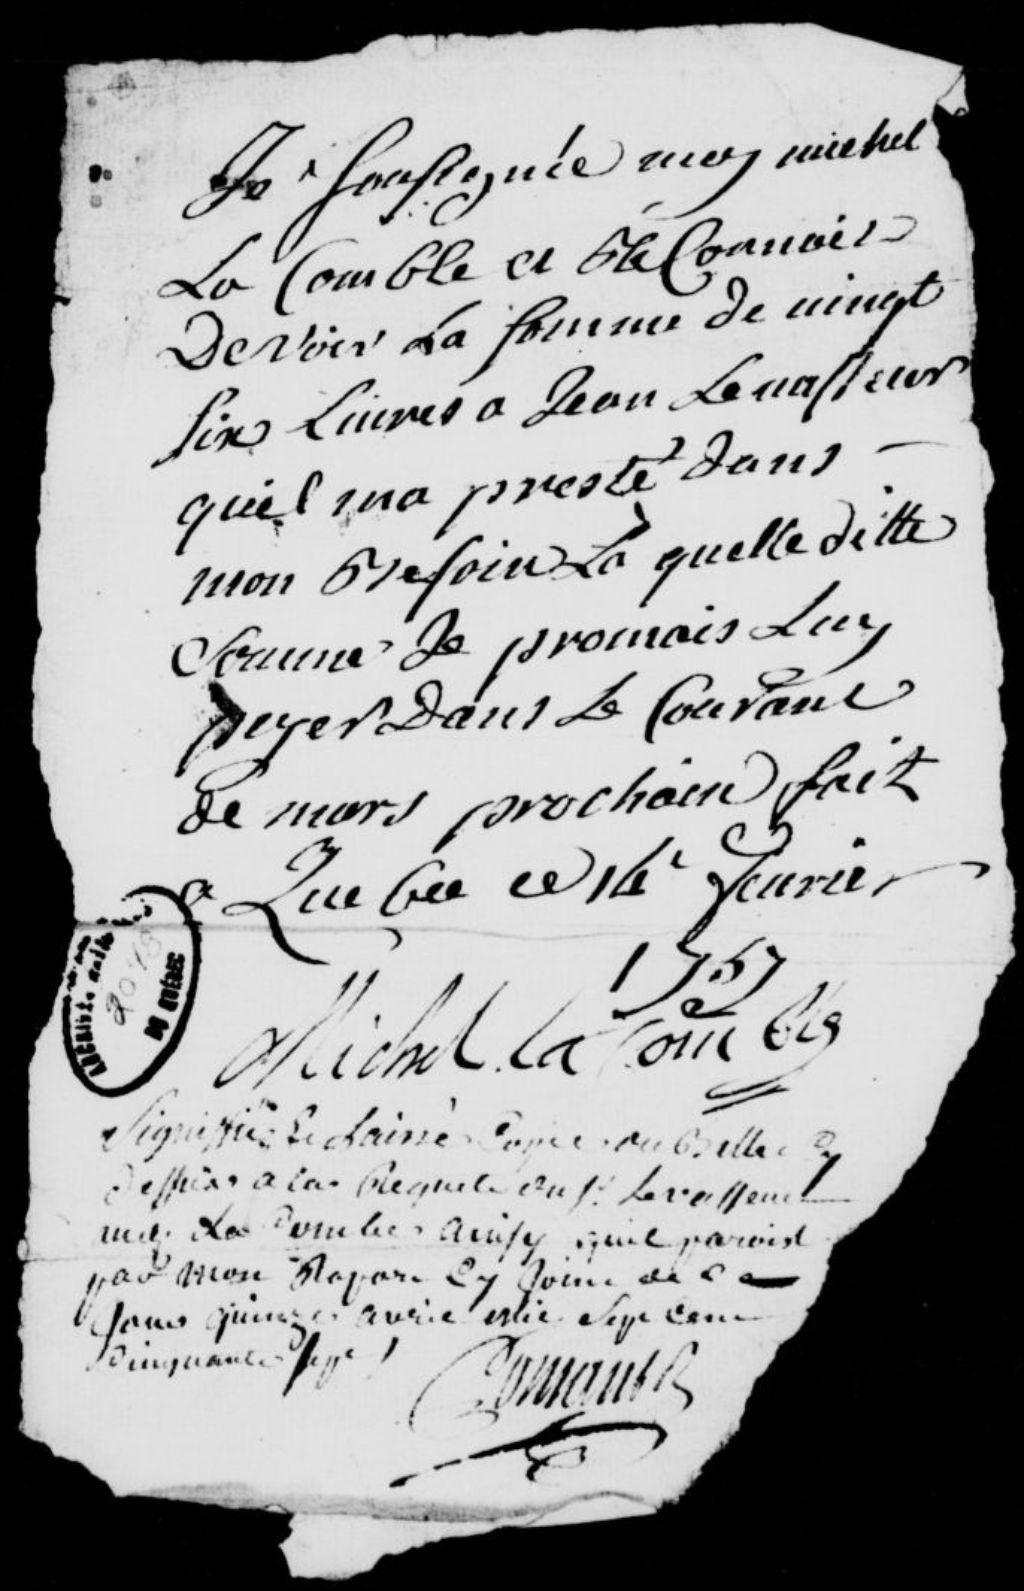 Je soussignée moy michel
La Comble et Re Connois
Devoir La somme de vingt
six Livres a Jean Levasseur
quiel ma presté dans
mon Besoin La quelle ditte
Somme Je promais Luy
peyer Dans Le Courant
de mars prochain fait
a Quebec ce 16e fevrier
1757
Michel la Comble
Signiffié & Laissé Copie du Billet Cy
dessus a la Requete du Sr Levasseur
La Combe Ainsy quil paroist
par mon Raport Cy Joint de Ce
Jour quinze avril mil Sept Cent
Cinquante sept